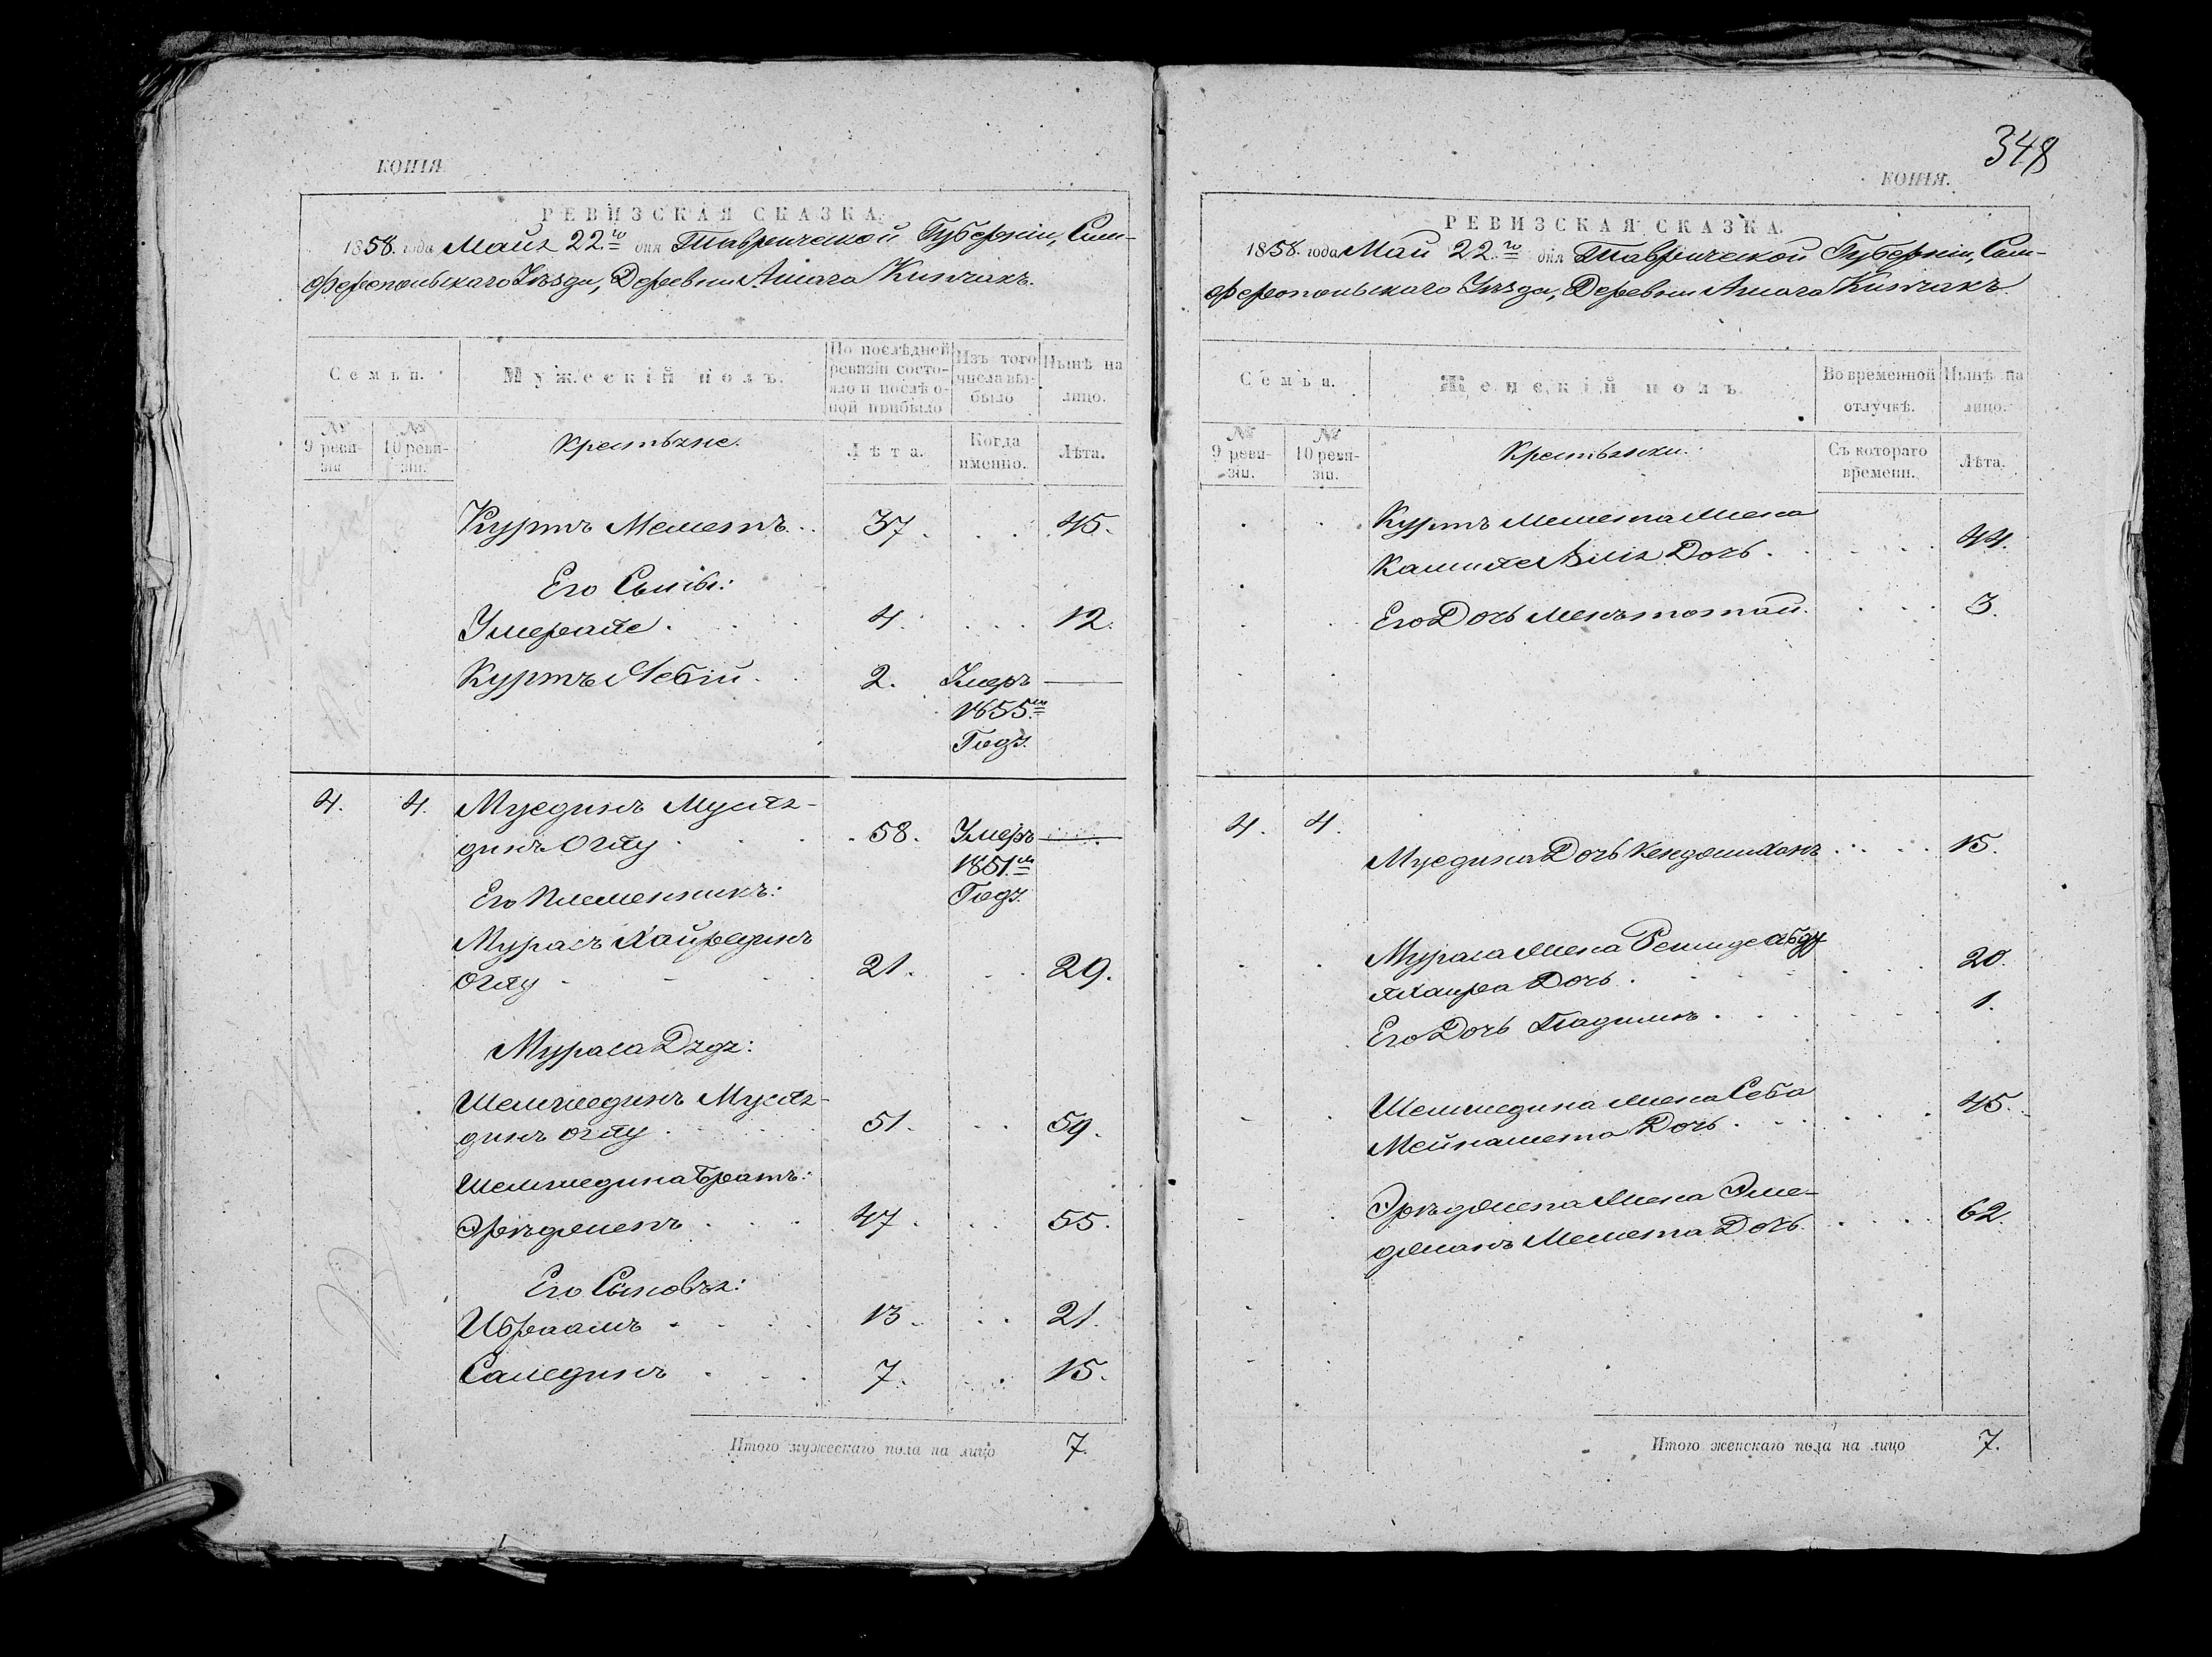 КОПІЯ.
РЕВИЗСКАЯ СКАЗКА.
1858. года Маія 22.го дня Таврической Губерніи, Сим-
феропольскаго Уѣзда, Деревни Ашага Кипчакъ.
Семьи.
Мужескій полъ.
По послѣдней ревизіи состо-
яло и послѣ о-
ной прибыло
Изъ того
числа вы-
было
Нынѣ на
лицо.
№ 9 реви-
зіи
№ 10 реви-
зіи.
Крестьяне.
Лѣта.
Когда
именно.
Лѣта.
Куртъ Меметъ . . 37. . . 45.
Его Сыны:
Умерали . 4. . . . 12.
Куртъ Небіи . 2. Умеръ —
1855.м
Годѣ.
4. 4. Муединъ Мусля-
динъ Оглу . . . 58. Умеръ —
1851.м
Годѣ.
Его Племянникъ:
Мурасъ Хайрединъ
Оглу . 21. . . 29.
Мураса Дядя:
Шемшединъ Мусля-
динъ оглу . 51. . . 59.
Шемшедина Братъ:
47. . . 55.
Его Сыновья:
Ибраамъ . 13. . . 21.
Салединъ . 7. . 15.
Итого мужескаго пола на лицо 7.
348
КОПІЯ.
РЕВИЗСКАЯ СКАЗКА.
1858. года Маи 22.го дня Таврической Губерніи, Сим-
феропольскаго Уѣзда, Деревни Ашага Кипчакъ
Семьа.
Женскій полъ.
Во временной
отлучкѣ.
Нынѣ на
лицо.
№ 9 реви-
зіи.
№ 10 реви-
зіи.
Крестьянки.
Съ котораго
времени.
Лѣта.
Куртъ Мемета Жена
Дочь . . . . 44.
Его Дочь . . . 3.
4. 4.
Муедина Дочь . . . . 15.
Мураса Жена Решиде Абду
Дочь . 20.
Его Дочь . . . 1.
Шемшедина Жена Себа
Дочь . . . . 45.
Жена Эме-
Мемета Дочь . . . . 62.
Итого женскаго пола на лицо 7.